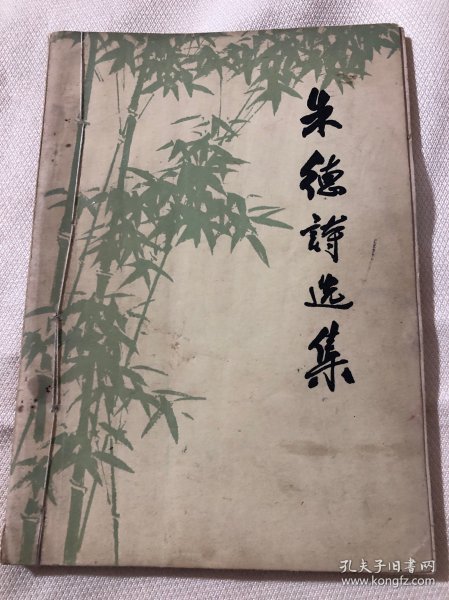 朱德詩选集
孔夫子旧书网
www.kongfz.com